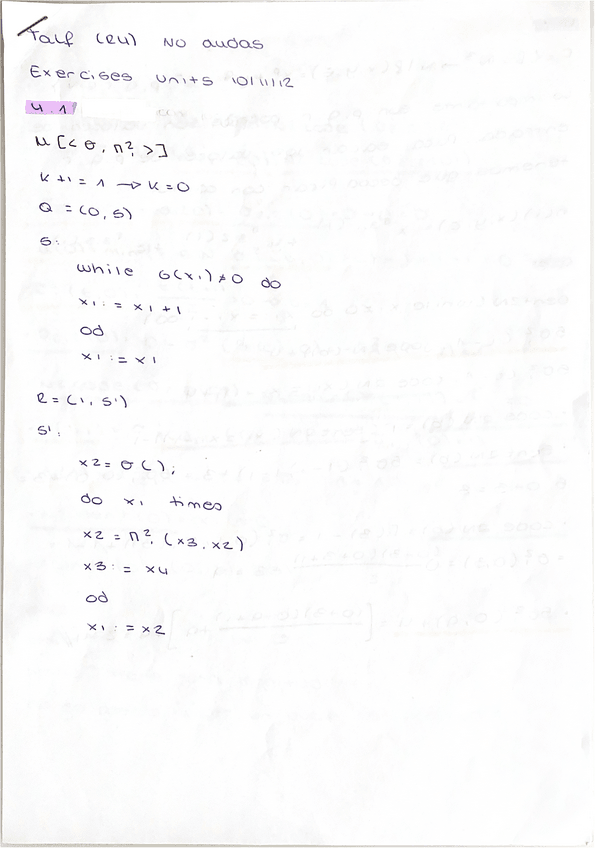 Talf (R4) No audas
Exercises units 10/11/12
4.1
μ[<σ, π²₁>]
K+1 = 1 → K=0
Q = (0, s)
s:
while G(x1) ≠ 0 do
x1 := x1 + 1
od
x1 := x1
R = (1, s')
s':
x2 = σ();
do x1 times
x2 = π²₁ (x3, x2)
x3 := x4
od
x1 := x2